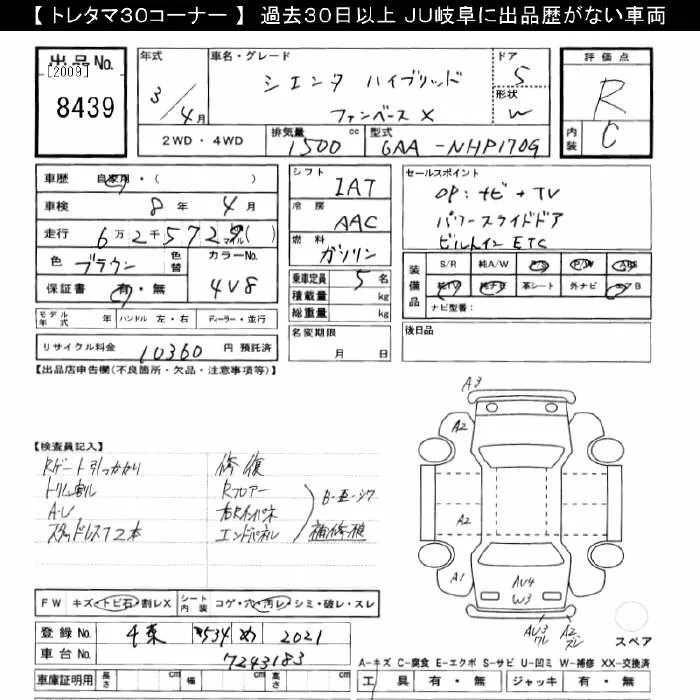 【 トレタマ30コーナー 】 過去30日以上 JU岐阜に出品歴がない車両
出品No.
[2009]
8439
年式
3/4月
車名・グレード
シエンタ ハイブリッド
ファンベース X
ドア
5
形状
W
2WD・4WD
排気量
1500 cc
型式
6AA-NHP170G
評価点
R
内装
C
車歴 自家用・( )
車検 8年 4月
走行 6万2千572 マイル( )
色 ブラウン
色替
カラーNo.
4V8
保証書 有・無
モデル年式 年
ハンドル 左・右
ディーラー・並行
リサイクル料金 10360 円 預託済
シフト
IAT
冷房
AAC
燃料
ガソリン
乗車定員 5名
積載量 kg
総重量 kg
名変期限
月 日
セールスポイント
OP:ナビ+TV
パワースライドドア
ビルトインETC
装備品
S/R 純A/W P/S P/W ABS
純TV 純ナビ 革シート 外ナビ エアB
ナビ型番:
後日品
【出品店申告欄(不良箇所・欠品・注意事項等)】
【検査員記入】
Rゲート引っかかり
トリム割ル
A・U
スタッドレス12本
修復
Rフロアー
エンドパネル
補修痕
FW キズ・トビ石・割レX
シート内装 コゲ・穴・汚レ・シミ・破レ・スレ
登録No. 534 め 2021
車台No. 7243183
車庫証明用 長さ cm 幅 cm 高さ cm
A3
A2
A2
A1
AU4
W3
AU3
ワレ
A2
ズレ
スペア
A-キズ C-腐食 E-エクボ S-サビ U-凹ミ W-補修 XX-交換済
工具 有・無 ジャッキ 有・無